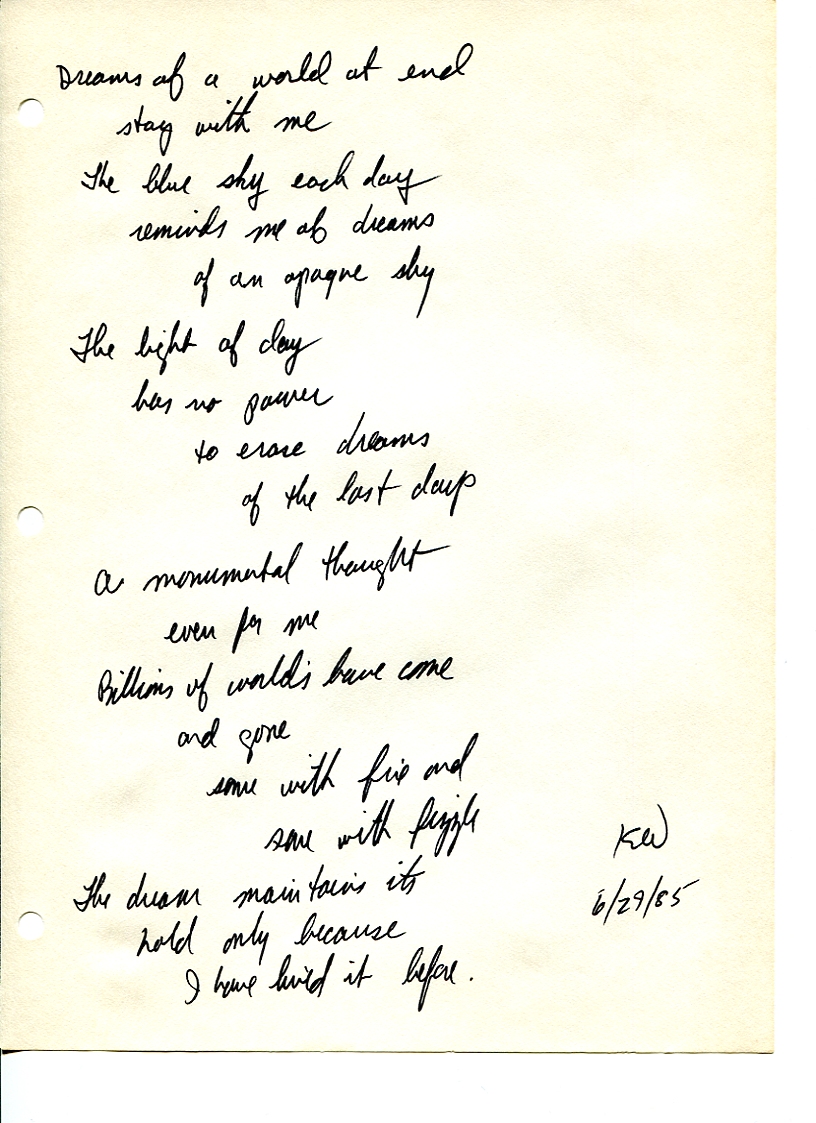 Dreams of a world at end
stay with me
The blue sky each day
reminds me of dreams
of an opaque sky
The light of day
has no power
to erase dreams
of the last days
A monumental thought
even for me
Billions of worlds have come
and gone
some with fire and
some with fizzle
The dream maintains its
hold only because
I have lived it before.
KW
6/29/85